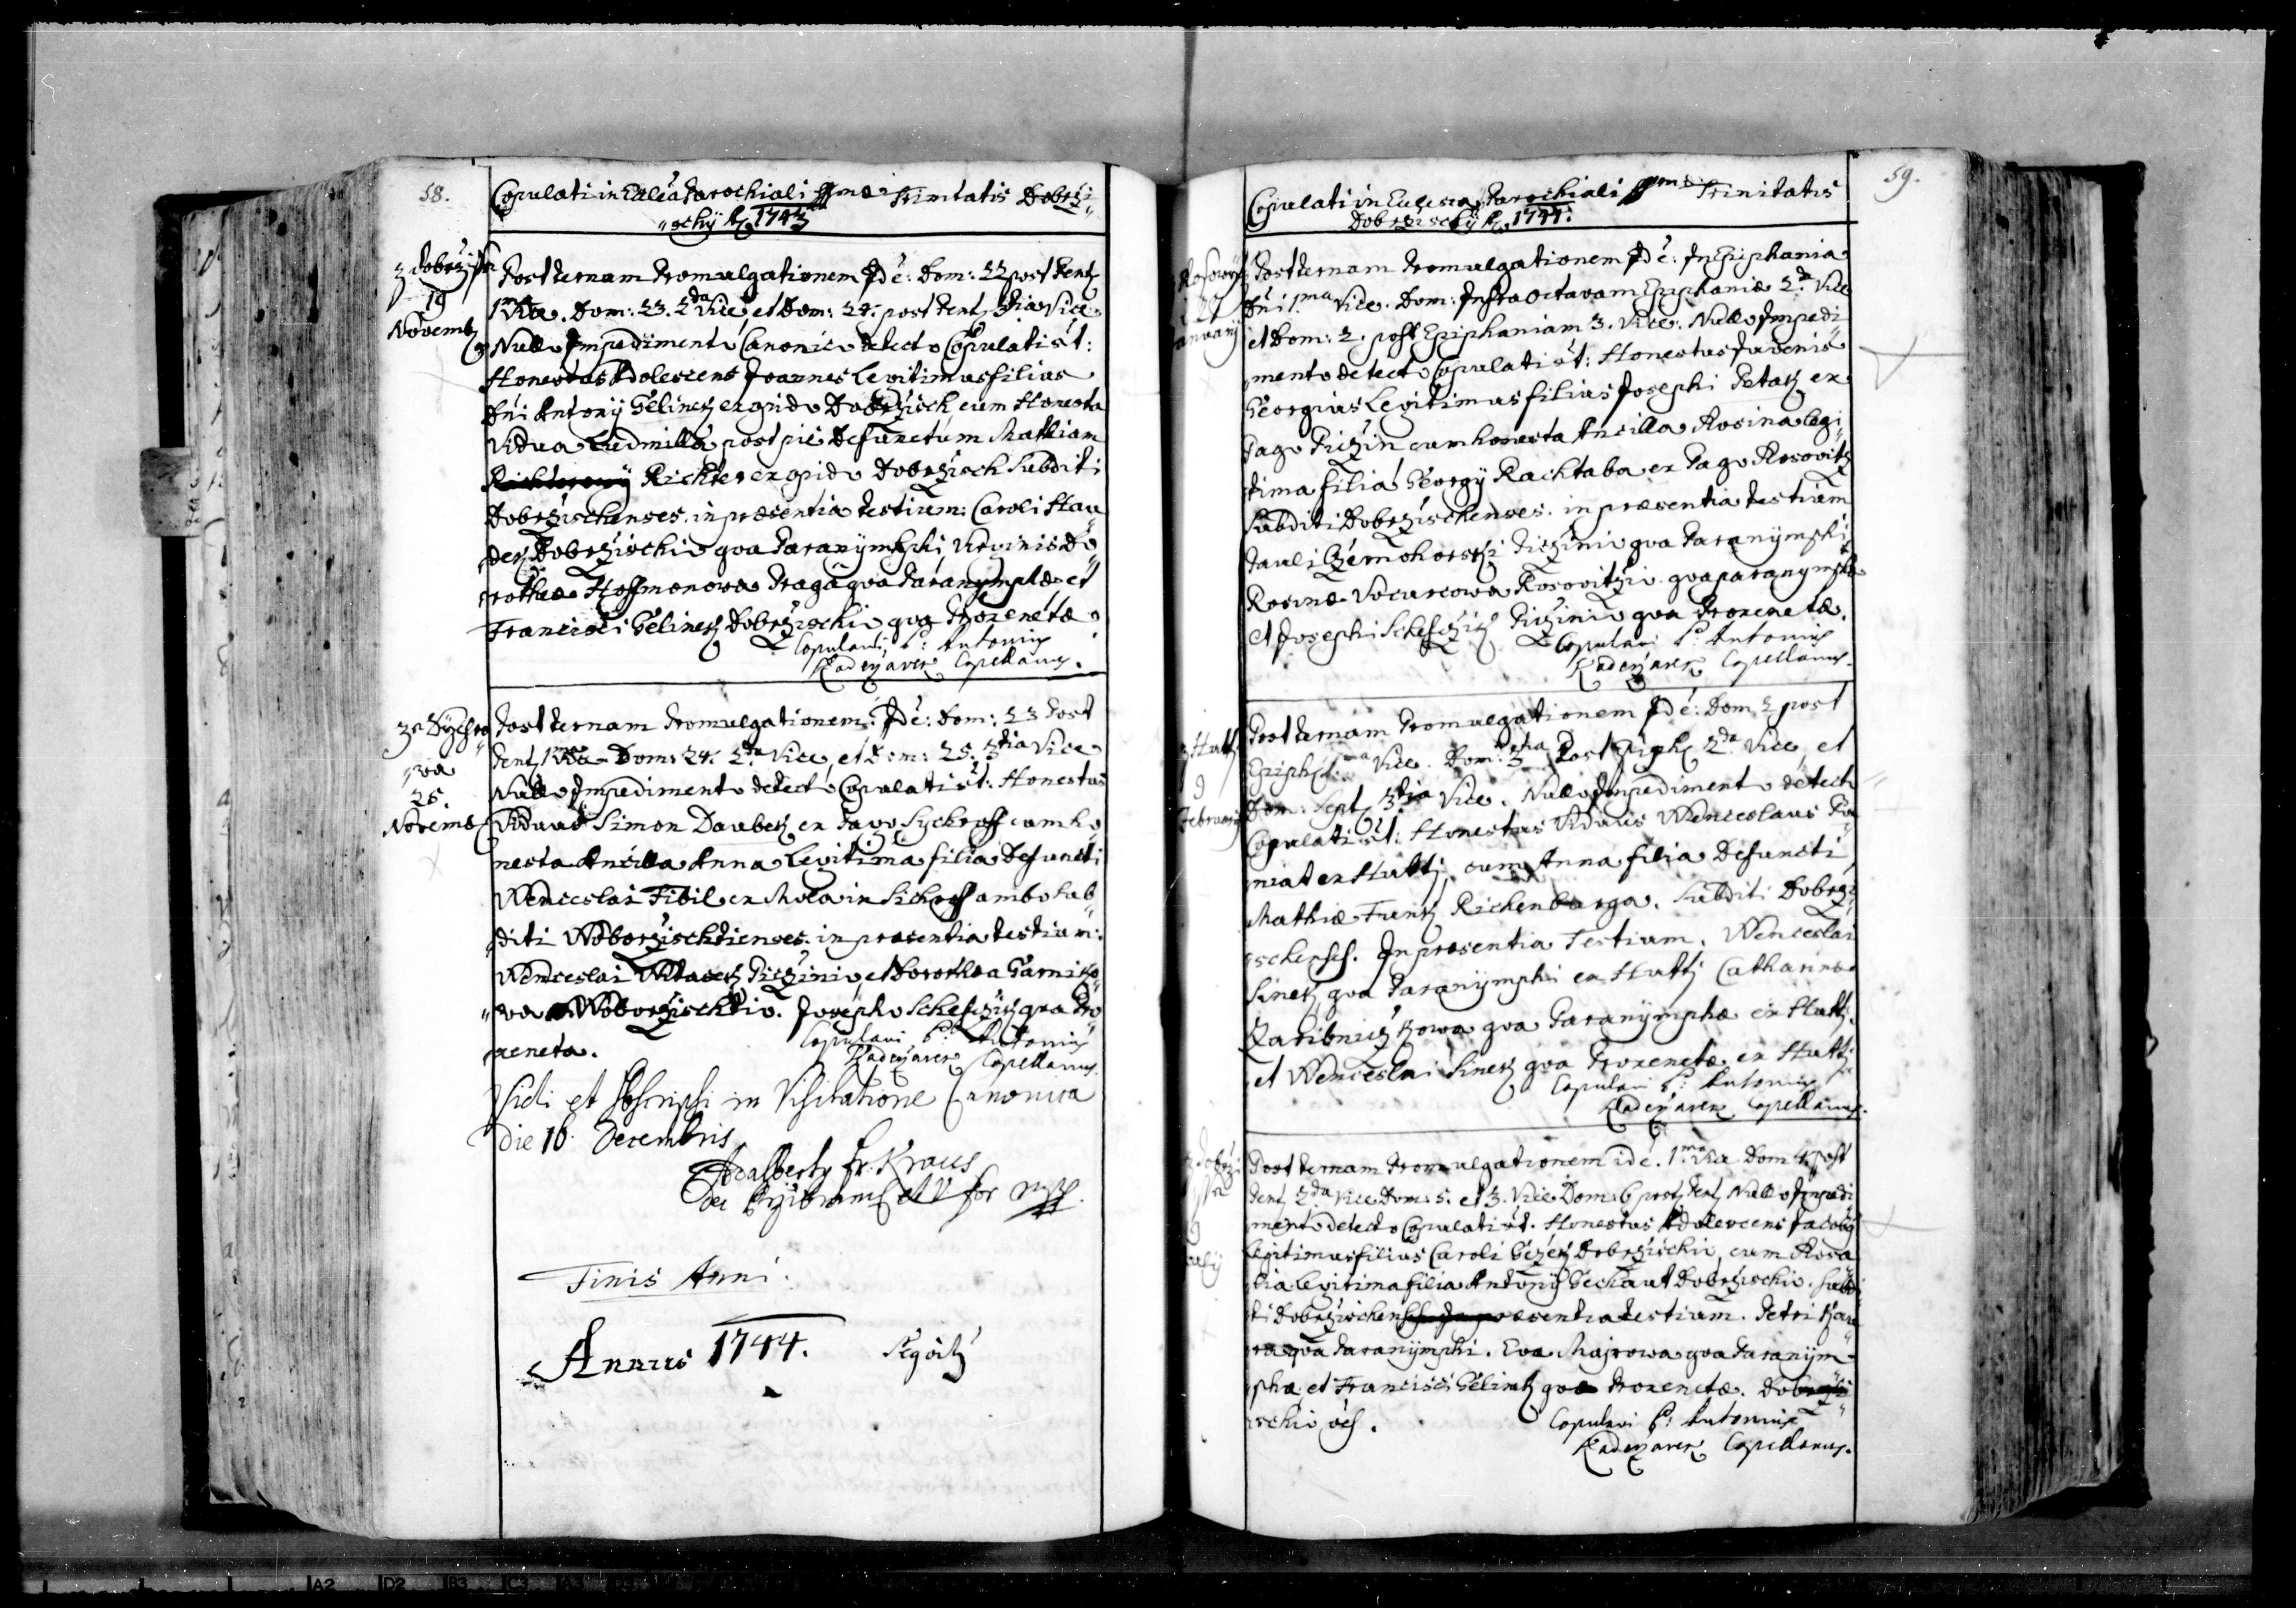 58.
Copulati in Eccła Parochiali SSmæ Trinitatis Dobrzi„
„schÿ Aō 1743
z Dobrzisse
19
Novemb
Post ternam Promulgationem Idé: Dom: 22 post Pent
1ma Vice. Dom: 23. 2da Vice, et Dom: 24. post Pent 3tia Vice
Nullo Impedimento Canonico detecto Copulati st̄:
Honestus Adolescens Joannes Legitimus filius
Dńi Antonÿ Gélinek ex opido Dobrzisch cum Honesta
Vidua Ludmilla post pié Defunctum Mathiam
Richter ex opido Dobrzisch Subditi
Dobrzischenses. in præsentia testium: Caroli Hau„
dek Dobrzischio qva Paranÿmphi, Virginis Do„
rotheæ Hoffmonowa Praga qva Paranymphæ et
Francisci Gélinek Dobrzischio qva Proxenetæ.
Copulavi P: Antonius
Capellanus.
ze Sychro„
„wa
25.
Novemb
Post ternam Promulgationem: Idé: Dom: 23 Post
Pent 1ma Vice Dom: 24. 2da Vice, et Dom: 25. 3tia Vice
Nullo Impedimento detecto Copulati st̄: Honestus
Viduus Simon Daubek ex Pago Sychroff cum ho„
nesta Ancilla Anna Legitima filia Defuncti
Wenceslai Fibil ex Mola in Sichroff ambo Sub„
diti Woborzischtienses. in præsentia testium:
Wenceslai Piczinio, et Dorothea
„wa Woborzischtio. Josepho Schefczik qva Pro„
xeneta.
Copulavi P: Antonius
Capellanus.
Vidi et Sbscripsi in Visitatione Canonica
die 16 Decembris
Adalbertg Fr. Kraus
Finis Anni.
Annus 1744.
59.
Copulati in Ecclesia Parochiali SSmæ Trinitatis
Dobrzischÿ Aō 1744.
Rosowitz
27
Januarÿ
Post ternam Promulgationem Idé: In Epiphania
Dńi 1ma Vice. Dom: Infra Octavam Epiphaniæ 2da Vice
et Dom: 2. post Epiphaniam 3. Vice. Nullo Impedi„
mento detecto Copulati st̄: Honestus Juvenis
Georgius Legitimus filius Josephi Petak ex
Pago Piczin cum honesta Ancilla Rosina legi„
tima filia Georgÿ Rachtaba ex Pago Rosowitz
Subditi Dobrzischenses. in præsentia testium
Pauli Czernohorski Piczinio qva Paranÿmphi
Rosinæ Vocurcowa Rosowitzio qva paranymphæ
et Josephi Schefczik Piczinio qva Proxenetæ.
Copulavi P: Antonius
Capellanus.
z Hutti
9
Februarÿ
Post ternam Promulgationem Idé: Dom 2 post
Epiph 1ma Vice. Dom: 3tia Post Epiph 2da Vice, et
Dom: Sept 3tia Vice. Nullo Impedimento detecto
Copulati st̄: Honestus Viduus Wenceslaus
ex Hutti, cum Anna filia Defuncti
Mathiæ Funk Richenbarga. Subditi Dobrzi„
schenses. In præsentia Testium. Wenceslai
Sinek, qva Paranÿmphi ex Hutti Catharina
qva Paranÿmphæ ex Hutti.
et Wenceslai Sinek qva Proxenetæ. ex Hutti
Copulavi P: Antonius
Capellanus.
z Dobrzi„
9
Post ternam Promulgationem idé. 1ma Vice Dom 4 post
Pent 2da Vice Dom: 5. et 3. Vice Dom: 6 post Pent Nullo Impedi„
mento detecto Copulati st̄. Honestus Adolescens Jacobg
Legitimus filius Caroli Dobrzischio, cum Rosa„
lia Legitima filia Antonÿ Dobrzischio. Subdi„
ti Dobrzischenses præsentia testium. Petri
qva Paranÿmphi. Eva Majrowa qva Paranÿm„
phæ, et Francisci Gélinek qva Proxenetæ. Dobrzi„
schio
Copulavi P: Antonius
Capellanus.